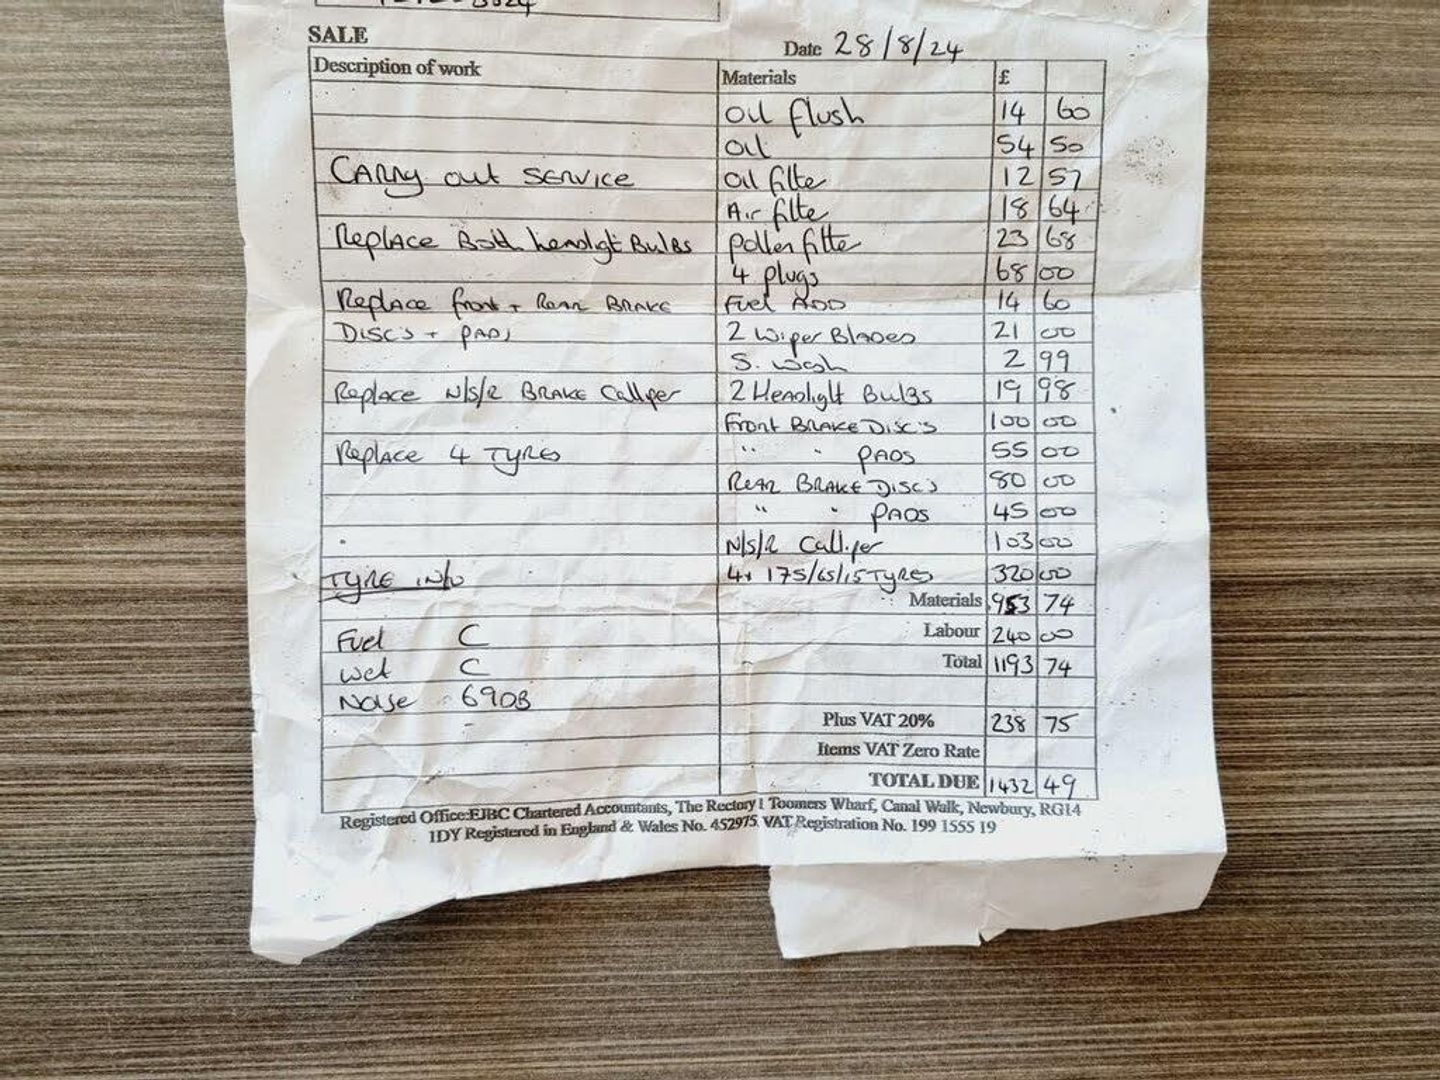 SALE
Date 28/8/24
Description of work Materials £
Oil flush 14 60
Oil 54 50
CARRy out SERVICE Oil filter 12 57
Air filte 18 64
Replace Both headligt Bulbs pollen filter 23 68
4 plugs 68 00
Replace front + Rear BRAKE Fuel ADD 14 60
DISC's + PADS 2 Wiper Blades 21 00
S. wash 2 99
Replace N/S/R BRAKE Calliper 2 Headlight Bulbs 19 98
Front BRAKE Disc's 100 00
Replace 4 TYRES " " PADS 55 00
REAR BRAKE DISC's 80 00
" " PADS 45 00
N/S/R Calliper 103 00
TYRE info 4x 175/65/15 TYRES 320 00
Materials 953 74
Fuel C Labour 240 00
Wet C Total 1193 74
Noise 69DB
Plus VAT 20% 238 75
Items VAT Zero Rate
TOTAL DUE 1432 49
Registered Office:EJBC Chartered Accountants, The Rectory 1 Toomers Wharf, Canal Walk, Newbury, RG14
1DY Registered in England & Wales No. 452975. VAT Registration No. 199 1555 19